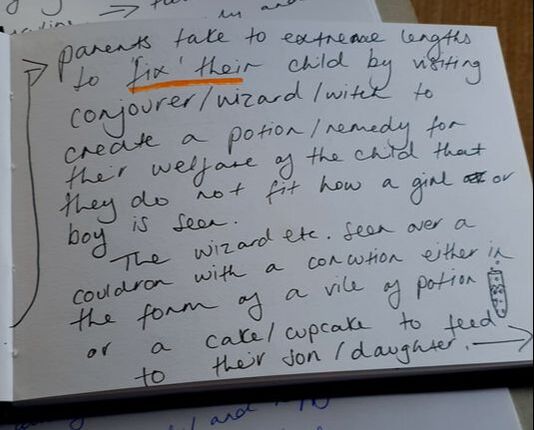 parents take to extreme lengths
to 'fix' their child by visiting
conjourer/wizard/witch to
create a potion/remedy for
their welfare of the child that
they do not fit how a girl or
boy is seen.
The wizard etc. seen over a
couldron with a concution either in
the form of a vile of potion
or a cake/cupcake to feed
to their son/daughter.